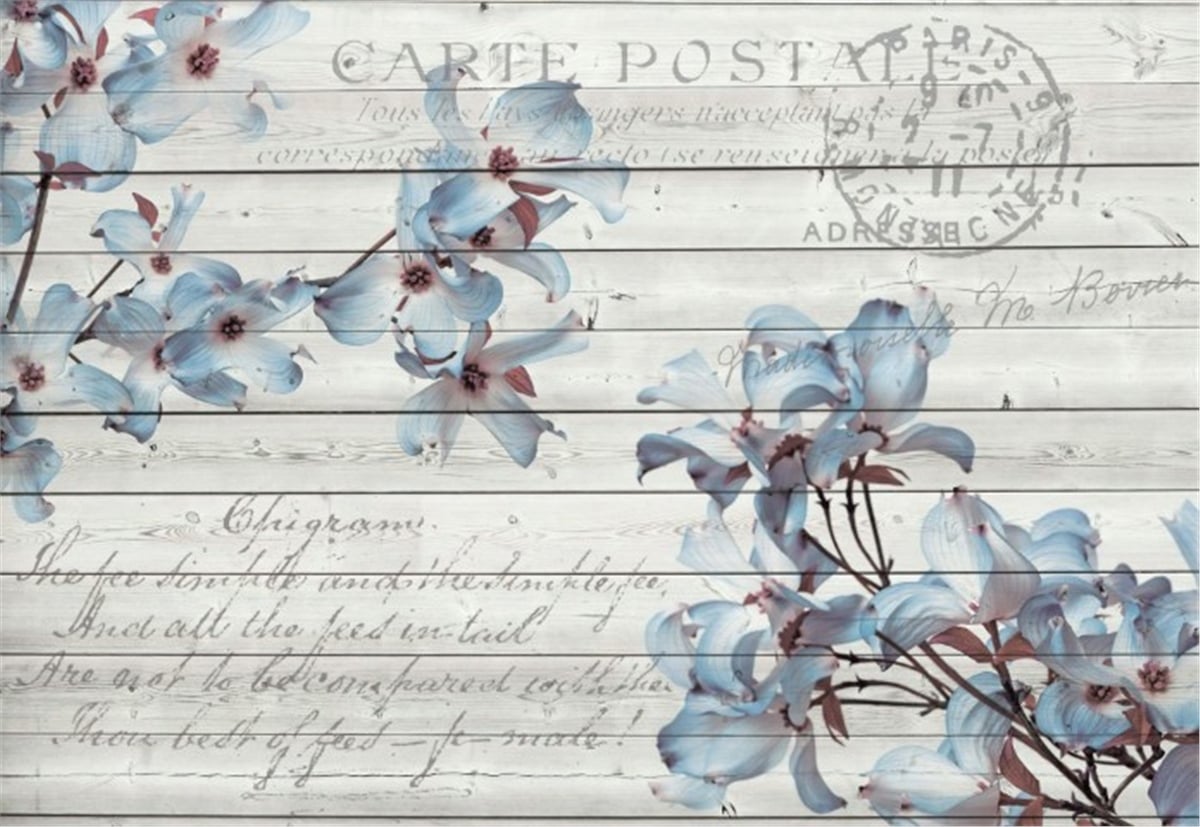 CARTE POSTALE
Tous les Pays étrangers n'acceptant pas la
correspondance au recto (se renseigner à la poste)
PARIS
ADRESSE
Mademoiselle M. Bovier
Epigram.
The fee simple and the simple fee,
And all the fees in tail
Are not to be compared with thee
Thou best of fees – fe – male!